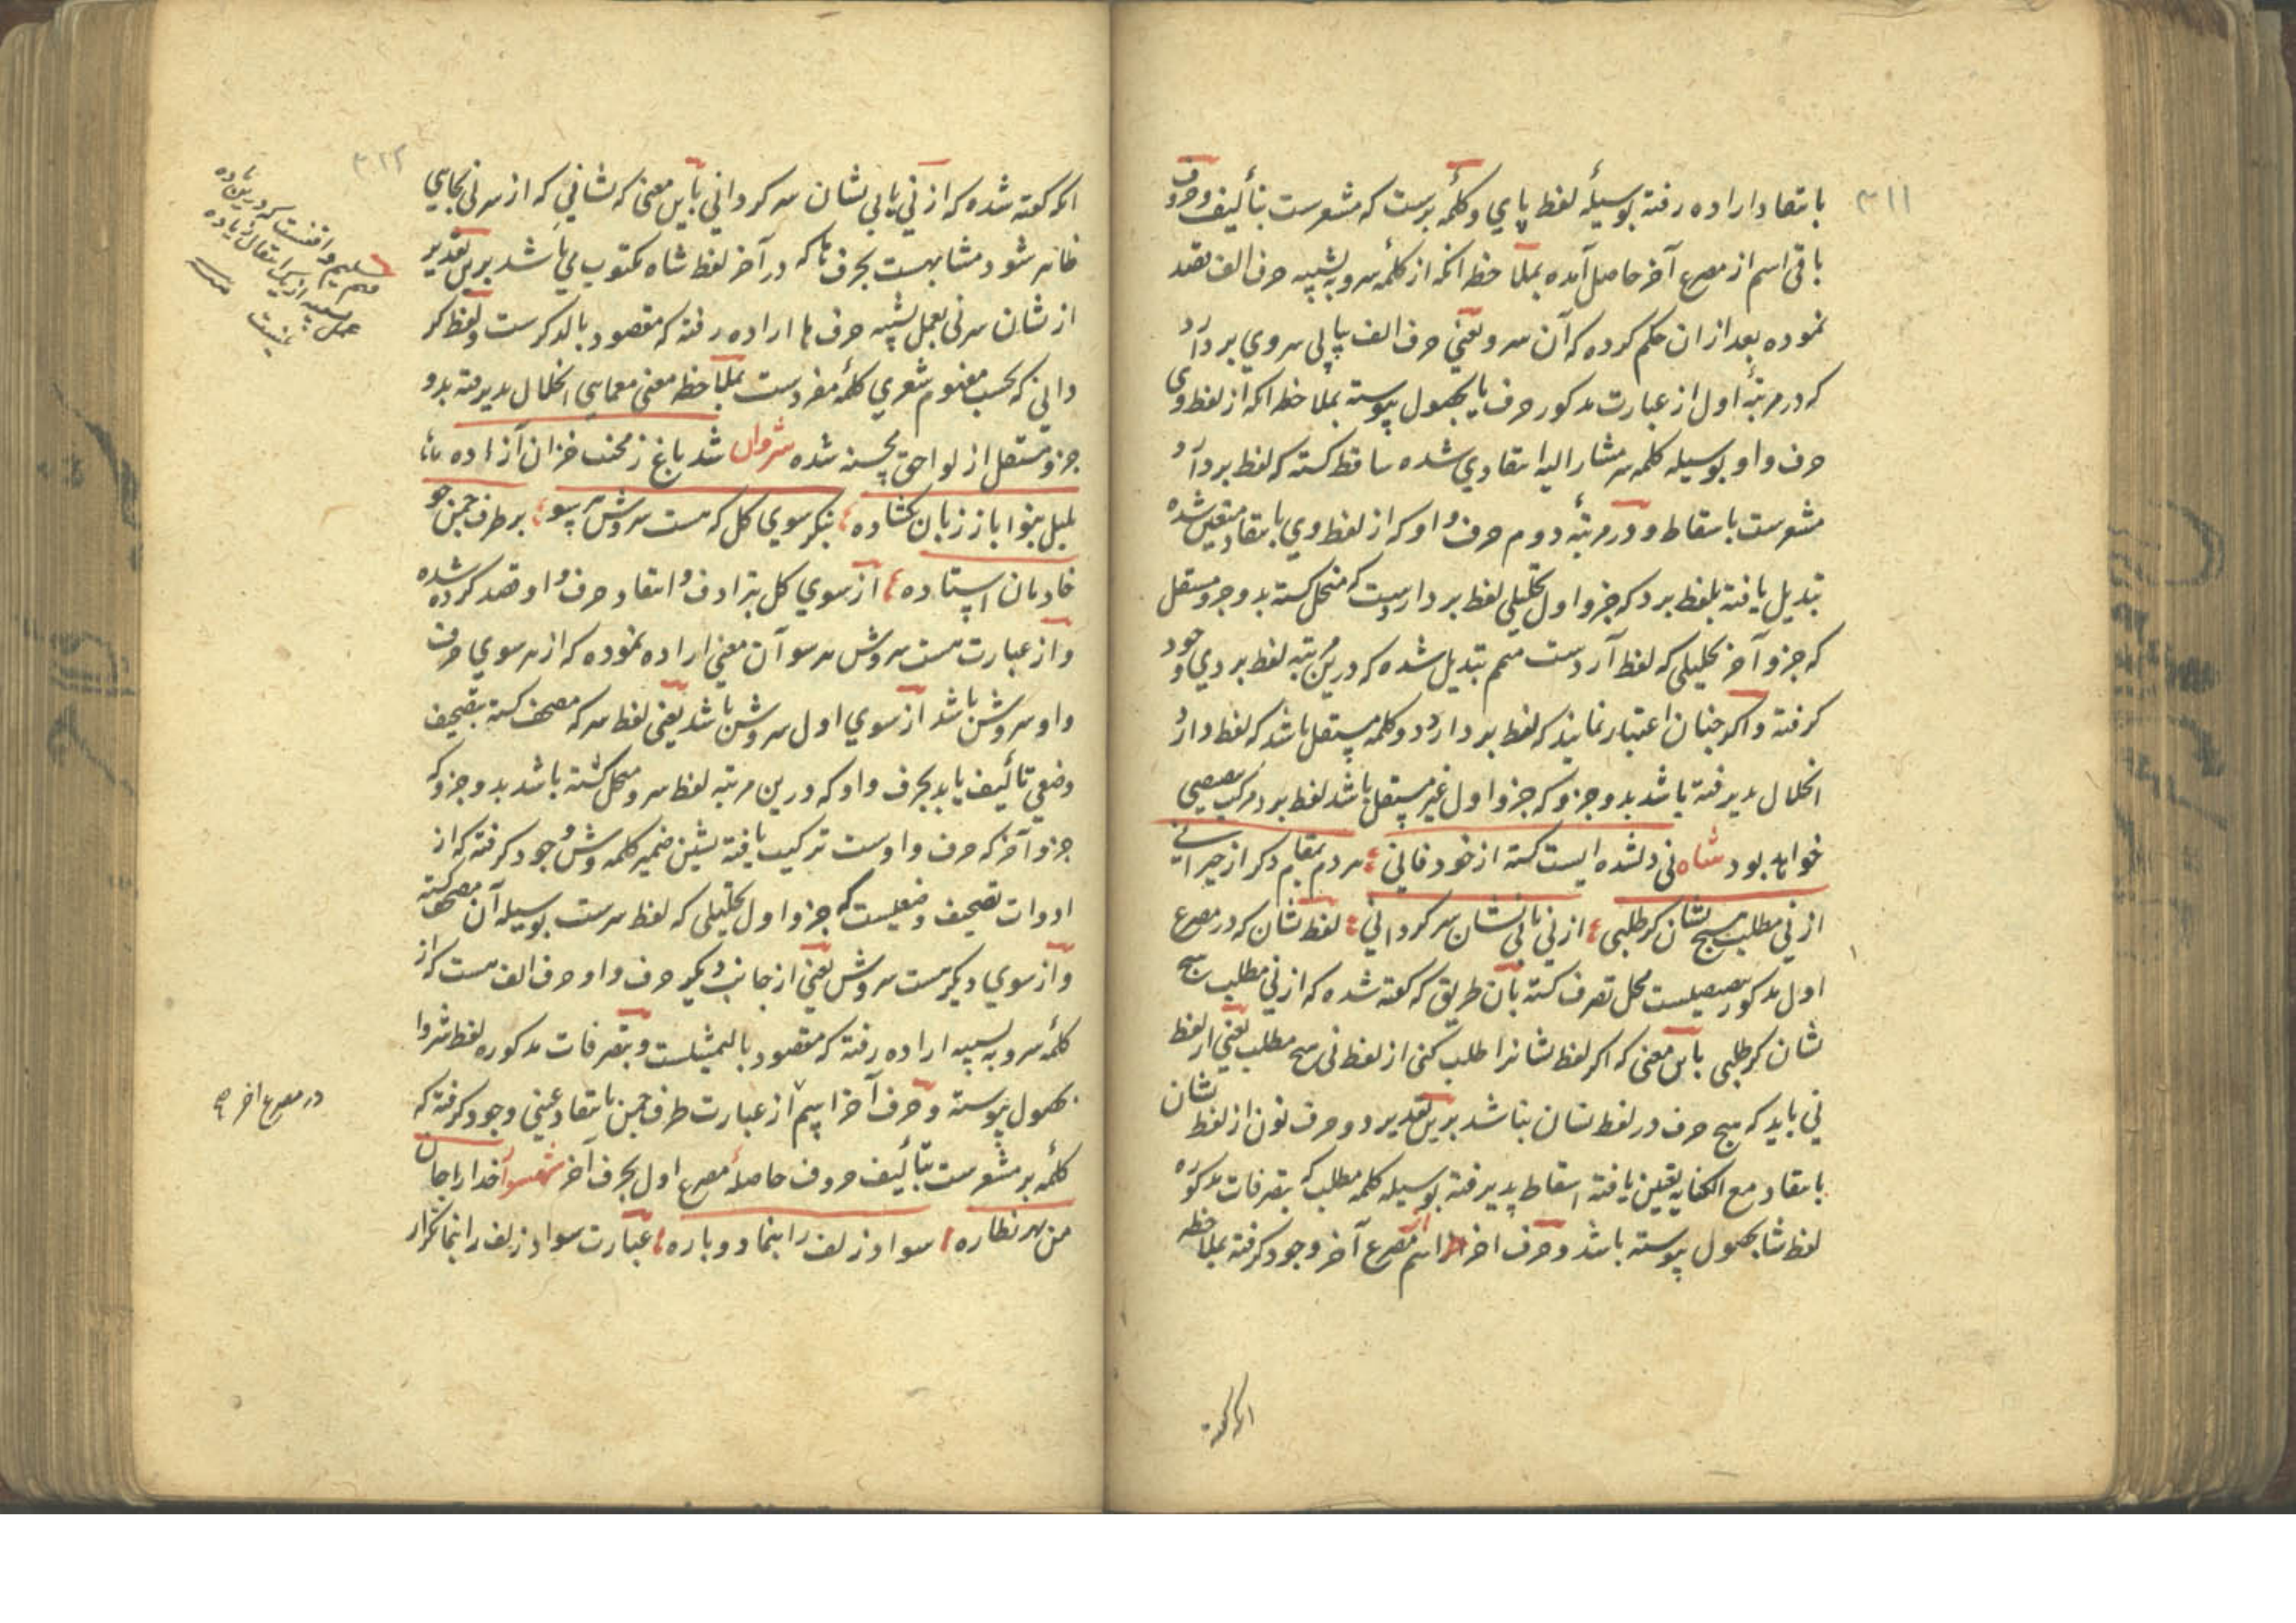 ۳۱۱
بانتقاد اراده رفته بوسیلهٔ لفظ پاي و کلمهٔ برست که مشعرست بتألیف و حروف
باقی اسم از مصرع آخر حاصل آمده بملاحظه آنکه از کلمهٔ سرو به تشبیه حرف الف قصد
نموده بعد از ان حکم کرده که آن سرو یعنی حرف الف پا پی سروي بردآرد
که در مرتبهٔ اول از عبارت مذکور حرف یا بحصول پیوسته بملاحظه آنکه از لفظ وی
حرف واو بوسیله کلمه سر مشار الیه انتقادي شده ساقط کشته که لفظ بردآرد
مشعرست باسقاط و در مرتبهٔ دوم حرف واو که از لفظ وي بانتقاد متعین شده
تبدیل یافته بلفظ برد که جزو اول تحلیلی لفظ برداردست که منحل کشته بدو جزو مستقل
که جزو آخر تحلیلی که لفظ آردست متمم تبدیل شده که درین مرتبه لفظ بردي وجود
کرفته و اکر چنان اعتبار نمایند که لفظ بردارد دو کلمه مستقل باشد که لفظ دارد
انحلال پذیرفته باشد بدو جزو که جزو اول غیر مستقل باشد لفظ برد مرکب تنصیصی
خواهد بود شاه نی دلشده ایست کشته از خود فانی ؛ مردم بمقام دکر از حیرانی
از نی مطلب هیچ نشان کر طلبی ؛ از نی یابی نشان سرکردانی ؛ لفظ نشان که در مصرع
اول مذکور تنصیصیست محل تصرف کشته بآن طریق که کفته شده که از نی مطلب هیچ
نشان کر طلبی باین معنی که اکر لفظ نشانرا طلب کنی از لفظ نی هیچ مطلب یعنی از لفظ
نی باید که هیچ حرف در لفظ نشان نباشد برین تقدیر دو حرف نون از لفظ نشان
بانتقاد مع الکنایه تعیین یافته اسقاط پذیرفته بوسیله کلمه مطلب که بتصرفات مذکوره
لفظ شا بحصول پیوسته باشد و حرف اخر اسم از مصرع آخر وجود کرفته بملاحظه
۳۱۲
انکه کفته شده که از نی یابی نشان سرکردانی باین معنی که نشانی که از سر نی بجایي
ظاهر شود مشابهست بحرف ها که در آخر لفظ شاه مکتوب می باشد برین تقدیر
از نشان سر نی بعمل تشبیه حرف ها اراده رفته که مقصود بالذکرست و لفظ کر
دانی که بحسب مفهوم شعري کلمهٔ مفردست بملاحظه معنی معمایی انحلال پذیرفته بدو
جزو مستقل از لواحق محسنه شده شروان شد باغ ز محنت خزان آزاده
بلبل بنوا باز زبان کشاده ؛ بنکر سوي کل که هست سروش هر سو ؛ بر طرف چمن چو
خادمان استاده ؛ از سوي کل بترادف و انتقاد حرف واو قصد کرده شده
و از عبارت هست سروش هر سو آن معنی اراده نموده که از هر سوي حرف
واو سروش باشد از سوي اول سروش باشد یعنی لفظ سر که مصحف کشته بتصحیف
وضعی تألیف یابد بحرف واو که درین مرتبه لفظ سرو منحل کشته باشد بدو جزو که
جزو آخر که حرف واوست ترکیب یافته بشین ضمیر کلمه وش وجود کرفته که از
ادوات تصحیف وضعیست که جزو اول تحلیلی که لفظ سرست بوسیله آن مصحف کشته
و از سوي دیکر هست سروش یعنی از جانب دیکر حرف واو حرف الف هست که از
کلمهٔ سرو به تشبیه اراده رفته که مقصود بالتمثیلست و بتصرفات مذکوره لفظ شروا
بحصول پیوسته و حرف آخر اسم از عبارت طرف چمن بانتقاد عینی وجود کرفته که
کلمهٔ بر مشعرست بتألیف حروف حاصلهٔ مصرع اول بحرف آخر خدا را جان
من بهر نظاره ؛ سواد زلف را بنما دوباره ؛ عبارت سواد زلف را بنما تکرار
در مصرع اخر
اکه کفته